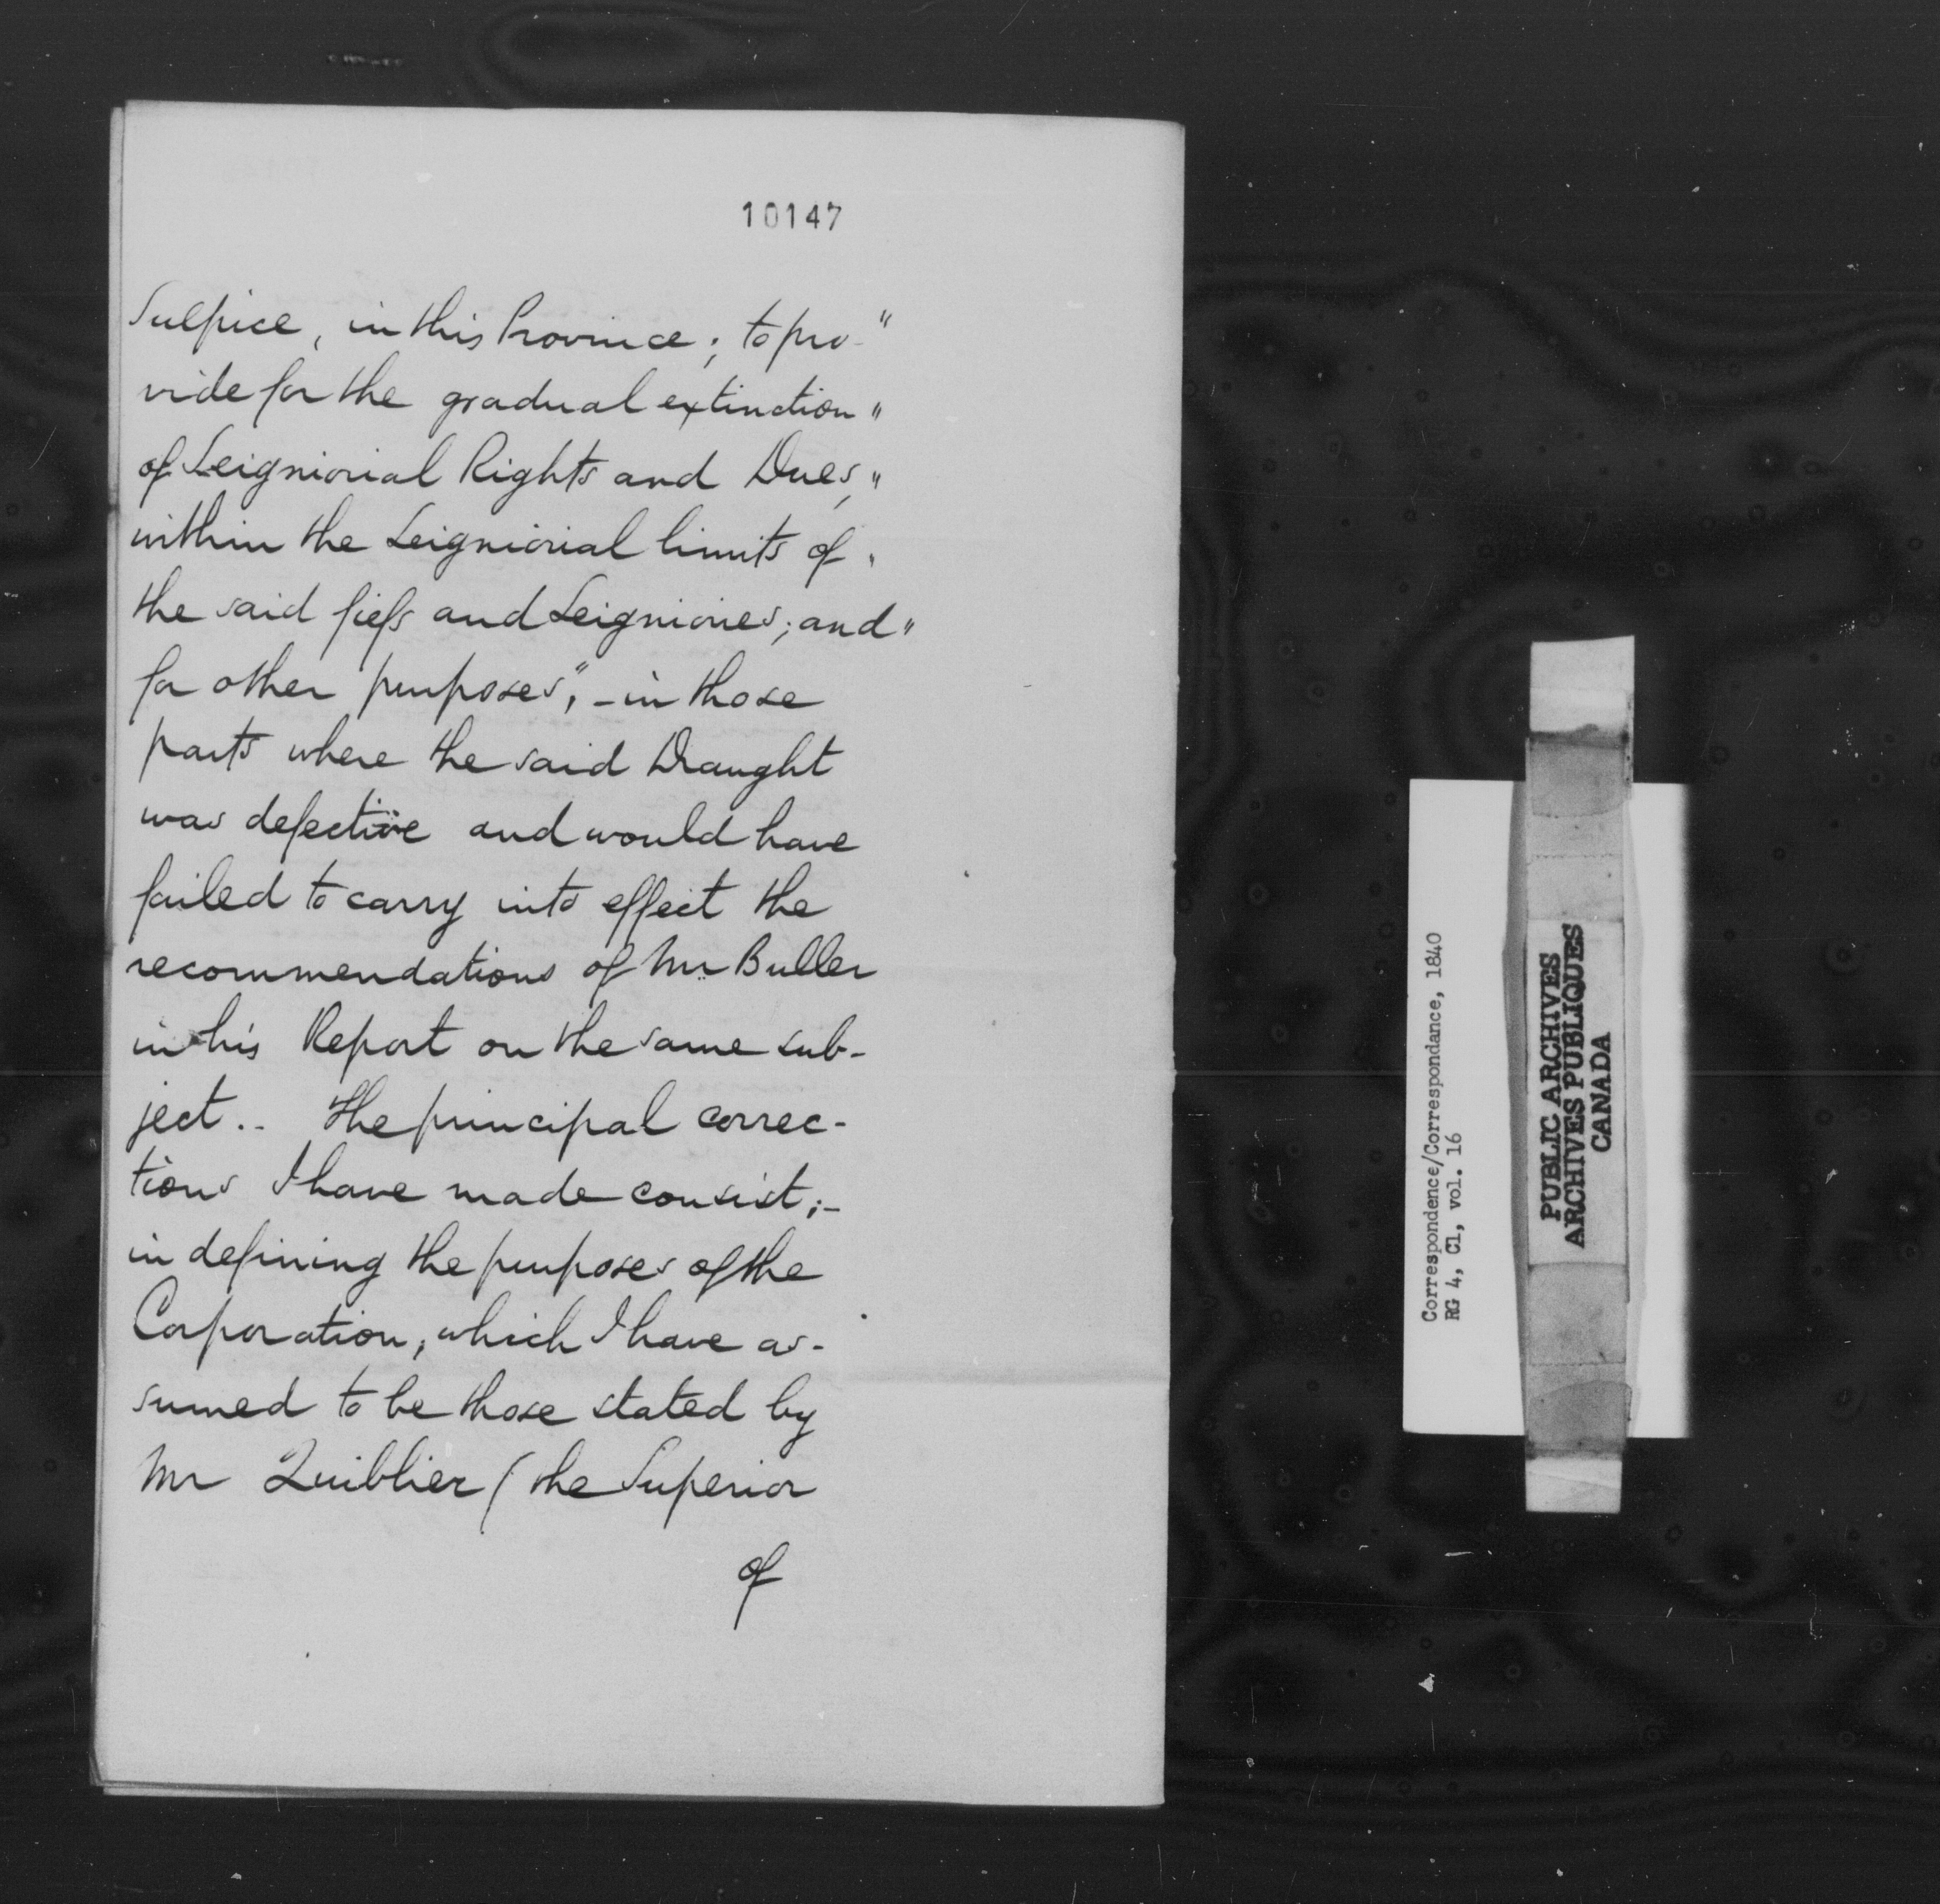 10147
Sulpice, in this Province; to pro-"
vide for the gradual extinction "
of Seigniorial Rights and Dues, "
within the Seigniorial limits of "
the said fiefs and Seigniories; and "
for other purposes", - in those
parts where the said Draught
was defective and would have
failed to carry into effect the
recommendations of Mr Buller
in his Report on the same sub-
ject.. The principal correc-
tions I have made consist;-
in defining the purposes of the
Corporation, which I have as-
sumed to be those stated by
Mr Quiblier (the Superior
of
Correspondence/Correspondance, 1840
RG 4, C1, vol. 16
PUBLIC ARCHIVES
ARCHIVES PUBLIQUES
CANADA